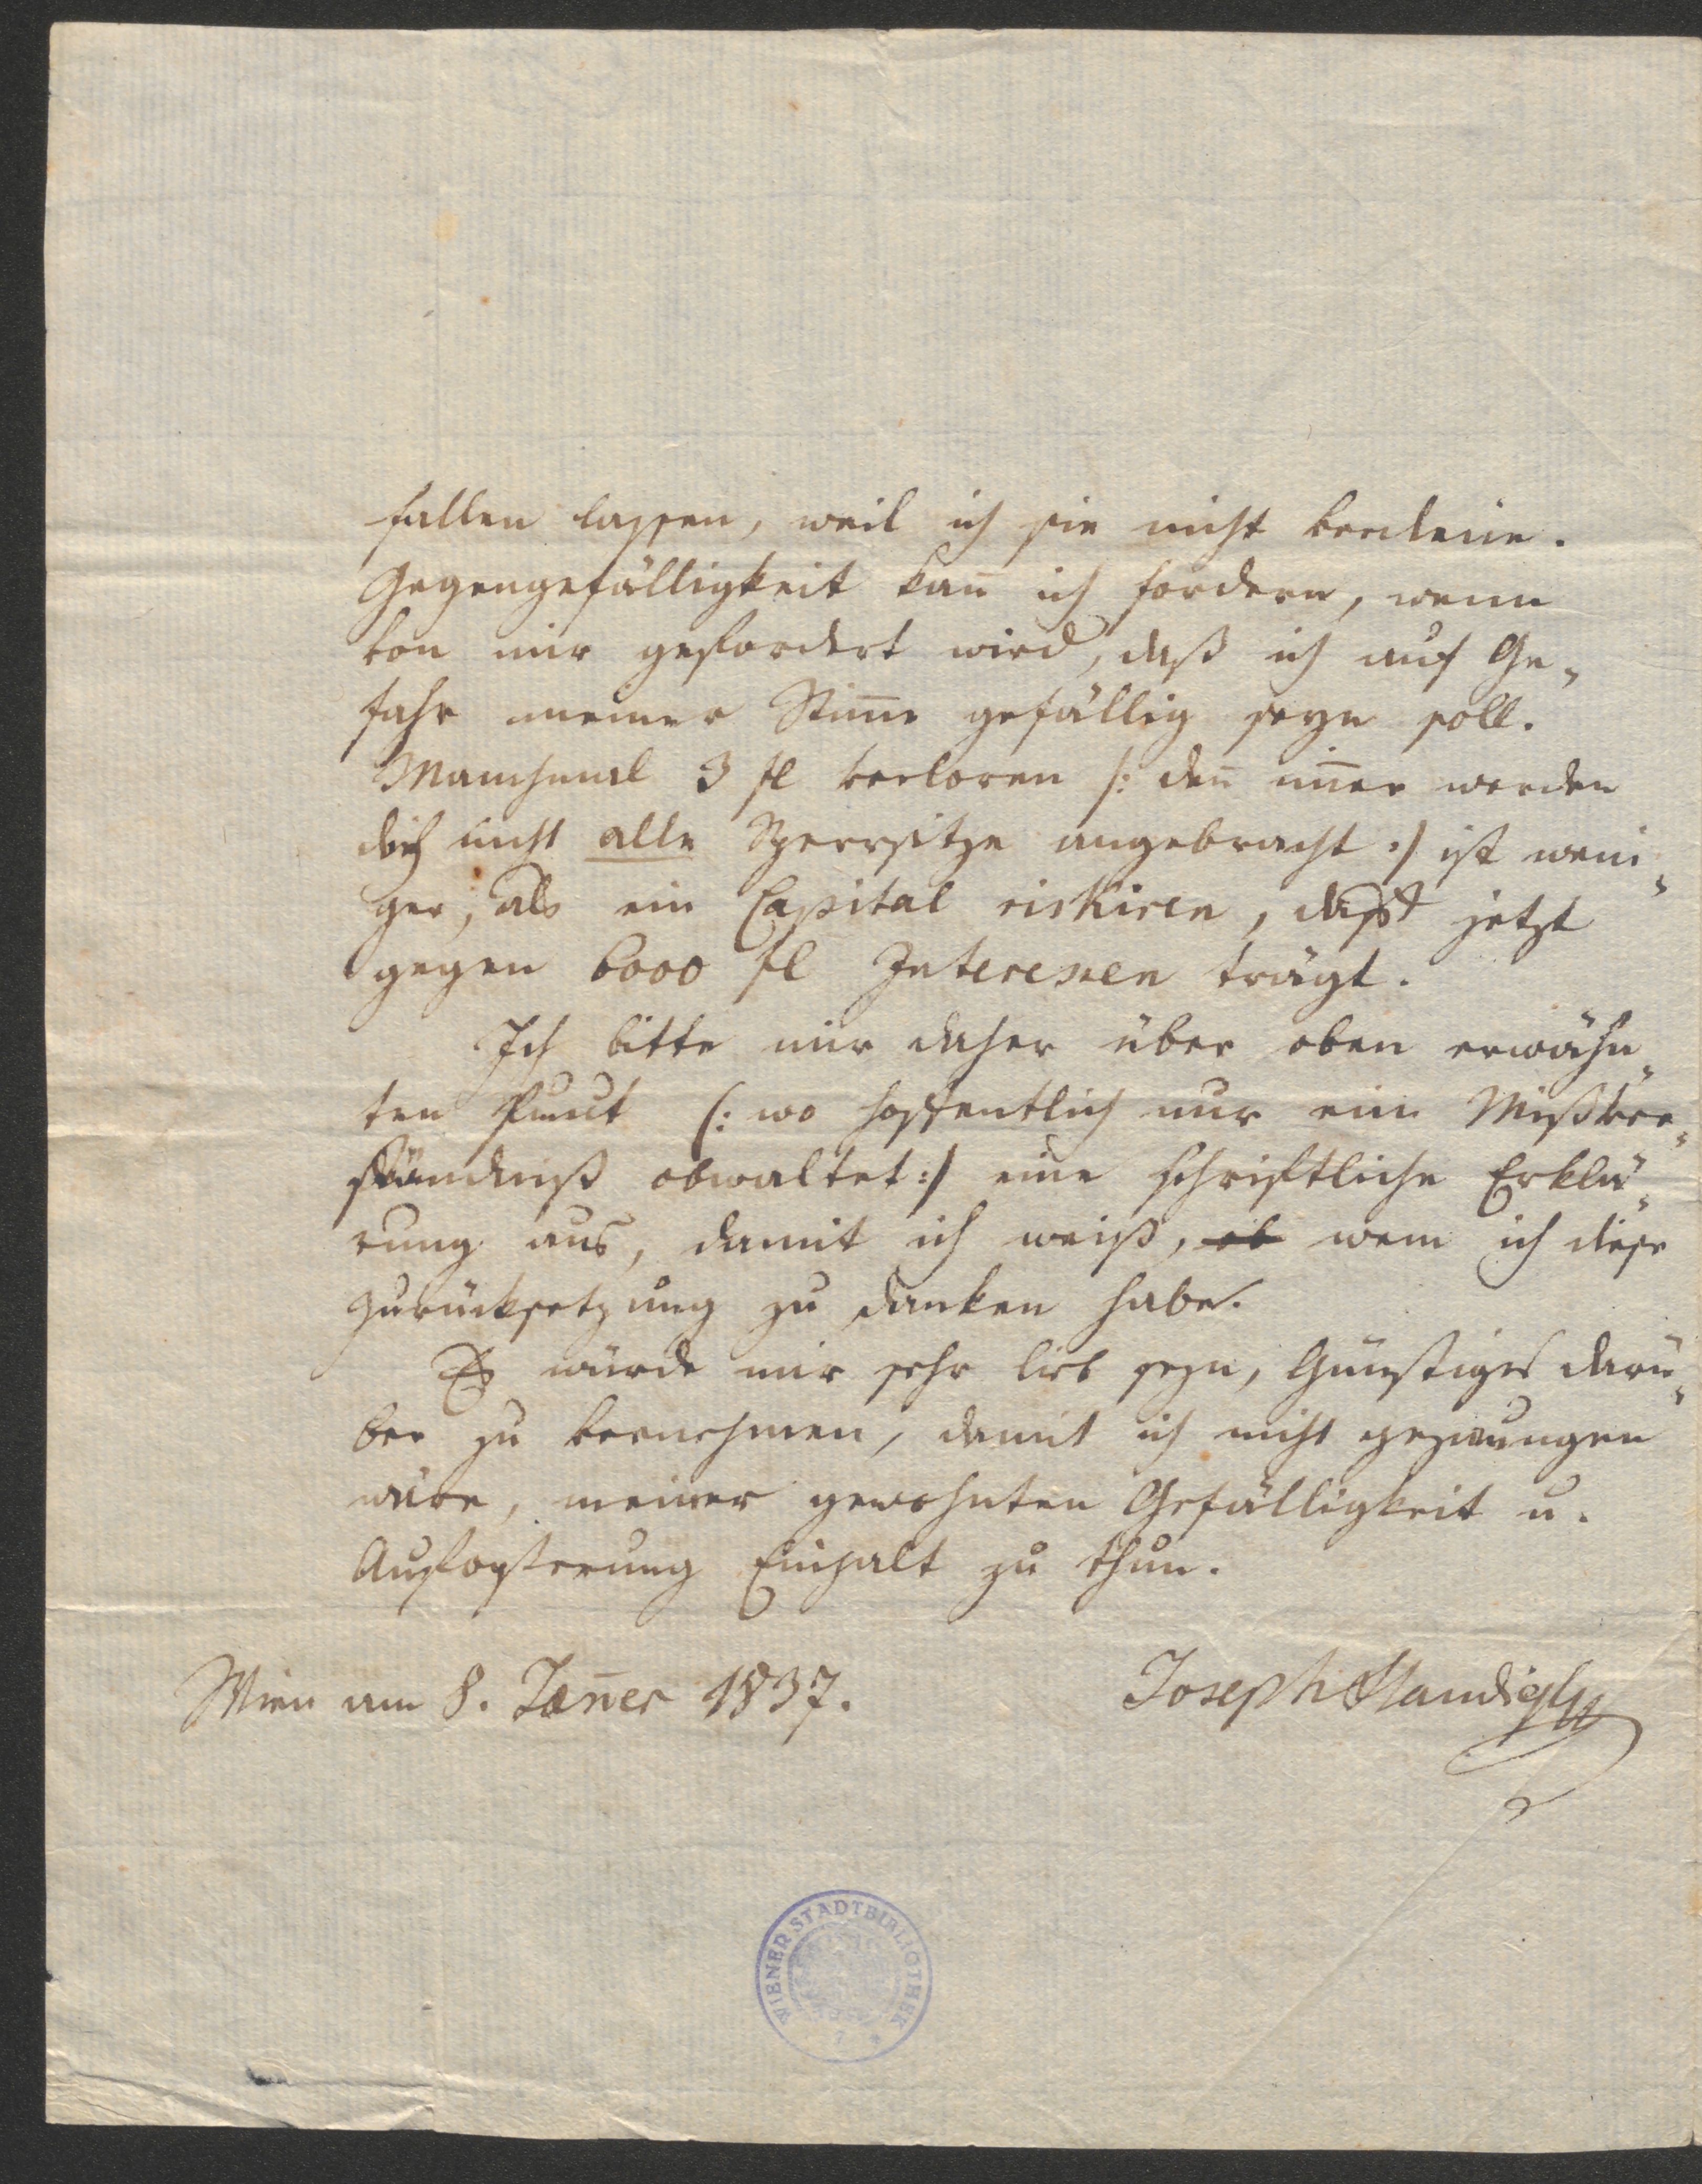 fallen lassen, weil ich sie nicht verdiene.
Gegengefälligkeit kan̄ ich fordern, wenn
von mir gefordert wird, daß ich auf Ge-
fahr meiner Stim̄e gefällig seyn soll.
Manchmal 3 fl verloren /: den̄ im̄er werden
doch nicht alle Sperrsitze angebracht :/ ist weni-
ger, als ein Capital riskiren, daß jetzt
gegen 6000 fl Interessen trägt.
Ich bitte mir daher über oben erwähn-
ten Punct /: wo hoffentlich nur ein Mißver-
ständniß obwaltet :/ eine schriftliche Erklä-
rung aus, damit ich weiß, ob wem ich diese
Zurücksetzung zu danken habe.
Es würde mir sehr lieb seyn, Günstiges darü-
ber zu vernehmen, damit ich nicht gezwungen
wäre, meiner gewohnten Gefälligkeit u.
Aufopferung Einhalt zu thun.
Wien am 8. Jän̄er 1837.
Joseph Staudigl
WIENER STADTBIBLIOTHEK